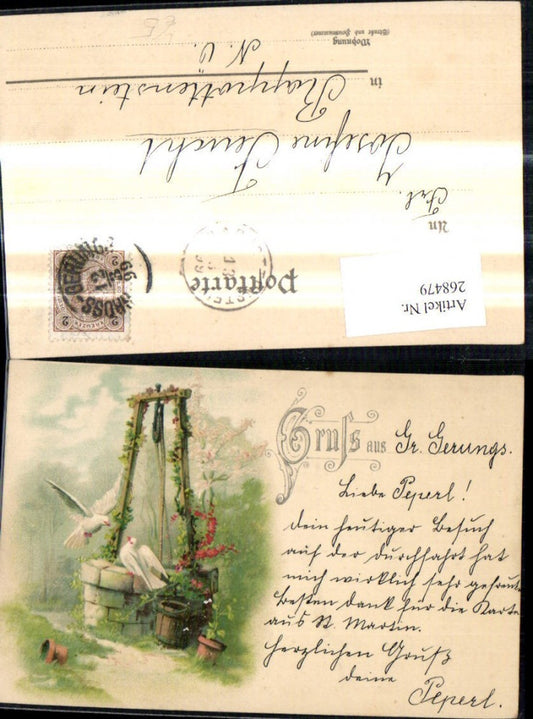 Postkarte
An
Frl. Josefine Feucht
in
Rappottenstein
N. Ö.
Wohnung
(Straße und Hausnummer)
GROSS-GERUNGS
99
2
KREUZER
2
Artikel Nr.
268479
Gruß aus Gr. Gerungs.
Liebe Peperl!
dein heutiger Besuch
auf der durchfahrt hat
mich wirklich sehr gefreut
Besten dank für die Karte
aus St. Martin.
herzlichen Gruß
deine
Peperl.